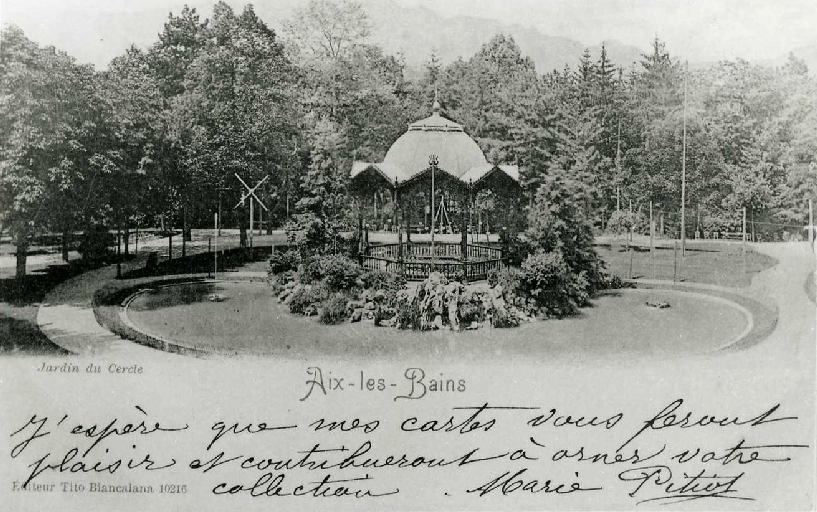 Jardin du Cercle
Aix-les-Bains
J'espère que mes cartes vous feront
plaisir et contribueront à orner votre
Editeur Tito Biancalana 10216
collection. Marie